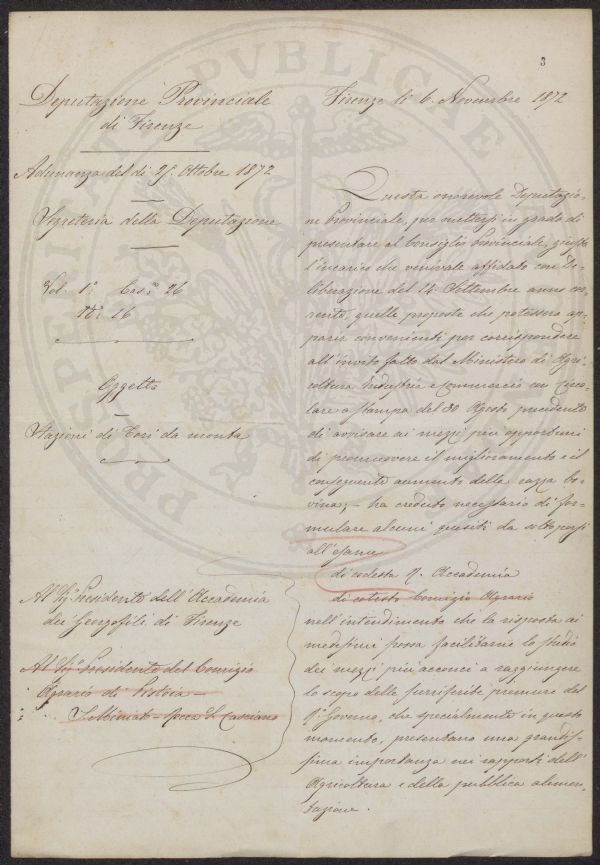 3
Deputazione Provinciale
di Firenze
Adunanza del dì 25. Ottobre 1872
Segreteria della Deputazione
Vol. 1º Cas.e 26
Nº 16
Oggetto
Stazioni di Tori da monta
Al Sig. Presidente dell'Accademia
dei Georgofili di Firenze
Al Sig. Presidente del Comizio
Agrario di Pistoia –
S. Miniato – Rocca S. Casciano
Firenze lì 6. Novembre 1872
Questa onorevole Deputazio-
ne Provinciale, per mettersi in grado di
presentare al Consiglio Provinciale, giusta
l'incarico che venivale affidato con De-
liberazione del 14. Settembre anno cor-
rente, quelle proposte che potessero ap-
parir convenienti per corrispondere
all'invito fatto dal Ministero di Agri-
coltura Industria e Commercio con Circo-
lare a stampa del 30 Agosto precedente
di avvisare ai mezzi più opportuni
di promuovere il miglioramento e il
conseguente aumento della razza bo-
vina, – ha creduto necessario di for-
mulare alcuni quesiti da sottoporsi
all'esame
di codesta R. Accademia
di cotesto Comizio Agrario
nell'intendimento che la risposta ai
medesimi possa facilitarne lo studio
dei mezzi più acconci a raggiungere
lo scopo delle surriferite premure del
R. Governo, che specialmente in questo
momento, presentano una grandis-
sima importanza nei rapporti dell'
Agricoltura e della pubblica alimen-
tazione.
PROSPERITATI PVBLICAE